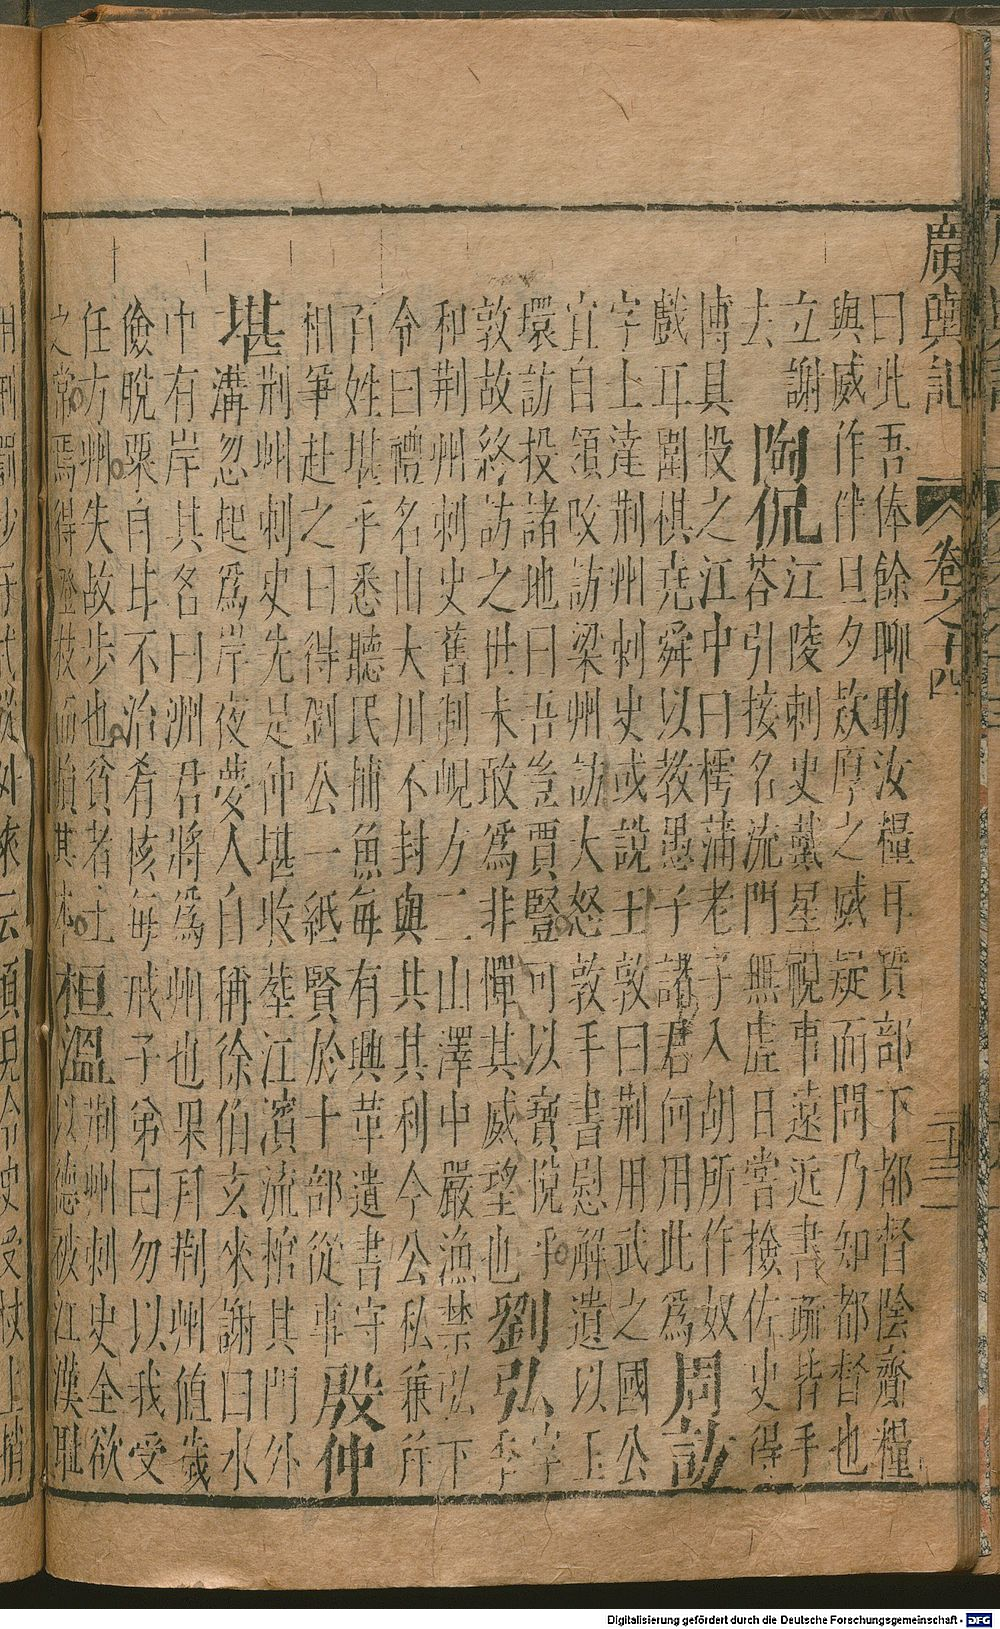 廣輿記 卷之十四
曰此吾俸餘聊助汝糧耳質部下都督陰齎糧
與威作伴旦夕欵厚之威疑而問乃知都督也
立謝
去
陶侃
江陵刺史戴星視事遠近書疏皆手
荅引接名流門無虛日嘗撿佐史得
博具投之江中曰樗蒲老子入胡所作奴
戲耳圍棋堯舜以教愚子諸君何用此為
周訪
字士達荆州刺史或說王敦曰荆用武之國公
宜自領改訪梁州訪大怒敦手書慰解遺以玉
環訪投諸地曰吾豈賈豎可以寶悅乎
敦故終訪之世未敢為非憚其威望也
劉弘
字
季
和荆州刺史舊制峴方二山澤中嚴漁禁弘下
令曰禮名山大川不封與共其利今公私兼并
百姓堪乎悉聽民捕魚每有興革遺書守
相筆赴之曰得劉公一紙賢於十部從事
殷仲
堪
荆州刺史先是仲堪收葬江濱流棺其門外
溝忽起為岸夜夢人自稱徐伯玄來謝曰水
中有岸其名曰洲君將為州也果拜荆州值歲
儉脫粟自甘不治肴核每戒子弟曰勿以我受
任方州失故步也貧者士
之常焉得登枝而捐其本
桓溫
荆州刺史全欲
以德被江漢恥
從外來云頃見令史受杖上捎
Digitalisierung gefördert durch die Deutsche Forschungsgemeinschaft - DFG